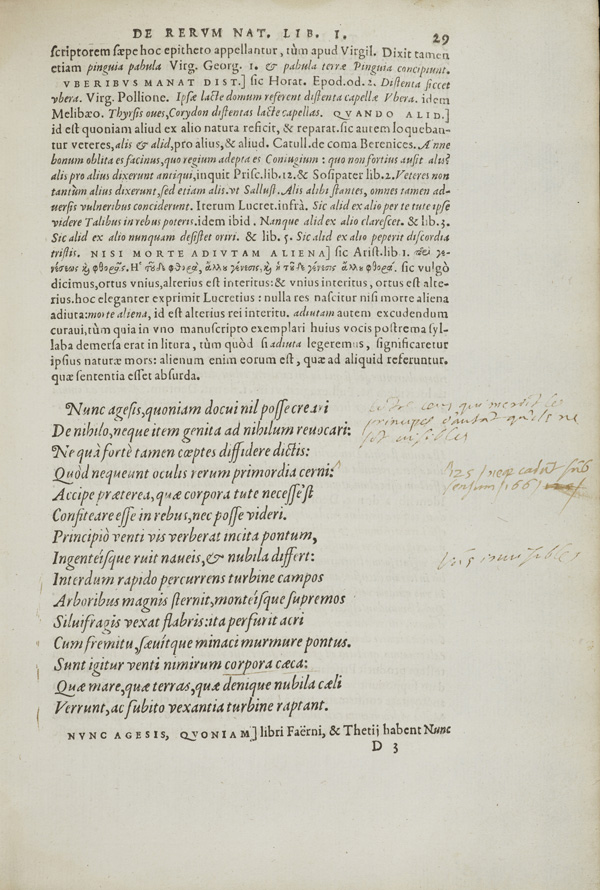 DE RERVM NAT. LIB. I. 29
scriptorem sæpe hoc epitheto appellantur, tùm apud Virgil. Dixit tamen
etiam pinguia pabula Virg. Georg. 1. & pabula terræ Pinguia concipiunt.
VBERIBVS MANAT DIST.] sic Horat. Epod. od. 2. Distenta siccet
vbera. Virg. Pollione. Ipsæ lacte domum referent distenta capellæ Vbera. idem
Melibæo. Thyrsis oues, Corydon distentas lacte capellas. QVANDO ALID.]
id est quoniam aliud ex alio natura reficit, & reparat. sic autem loqueban-
tur veteres, alis & alid, pro alius, & aliud. Catull. de coma Berenices. Anne
bonum oblita es facinus, quo regium adepta es Coniugium: quo non fortius ausit alis?
alis pro alius dixerunt antiqui, inquit Prisc. lib. 12. & Sosipater lib. 2. Veteres non
tantùm alius dixerunt, sed etiam alis. vt Sallust. Alis alibi stantes, omnes tamen ad-
uersis vulneribus conciderunt. Iterum Lucret. infrà. Sic alid ex alio per te tute ipse
videre Talibus in rebus poteris. idem ibid. Nanque alid ex alio clarescet. & lib. 3.
Sic alid ex alio nunquam desistet oriri. & lib. 5. Sic alid ex alio peperit discordia
tristis. NISI MORTE ADIVTAM ALIENA] sic Arist. lib. 1. περὶ γε-
νέσεως καὶ φθορᾶς. Ἡ τοῦδε φθορὰ, ἄλλου γένεσις, καὶ ἡ τοῦδε γένεσις ἄλλου φθορά. sic vulgò
dicimus, ortus vnius, alterius est interitus: & vnius interitus, ortus est alte-
rius. hoc eleganter exprimit Lucretius: nulla res nascitur nisi morte aliena
adiuta: morte aliena, id est alterius rei interitu. adiutam autem excudendum
curaui, tùm quia in vno manuscripto exemplari huius vocis postrema syl-
laba demersa erat in litura, tùm quòd si adiuta legeremus, significaretur
ipsius naturæ mors: alienum enim eorum est, quæ ad aliquid referuntur.
quæ sententia esset absurda.
Nunc agesis, quoniam docui nil posse creari
De nihilo, neque item genita ad nihilum reuocari:
Ne quà fortè tamen cœptes diffidere dictis:
Quòd nequeunt oculis rerum primordia cerni:
Accipe præterea, quæ corpora tute necesse'st
Confiteare esse in rebus, nec posse videri.
Principiò venti vis verberat incita pontum,
Ingenteisque ruit naueis, & nubila differt:
Interdum rapido percurrens turbine campos
Arboribus magnis sternit, monteisque supremos
Siluifragis vexat flabris: ita perfurit acri
Cum fremitu, sæuítque minaci murmure pontus.
Sunt igitur venti nimirum corpora cæca:
Quæ mare, quæ terras, quæ denique nubila cæli
Verrunt, ac subito vexantia turbine raptant.
NVNC AGESIS, QVONIAM] libri Faërni, & Thetij habent Nunc
D 3